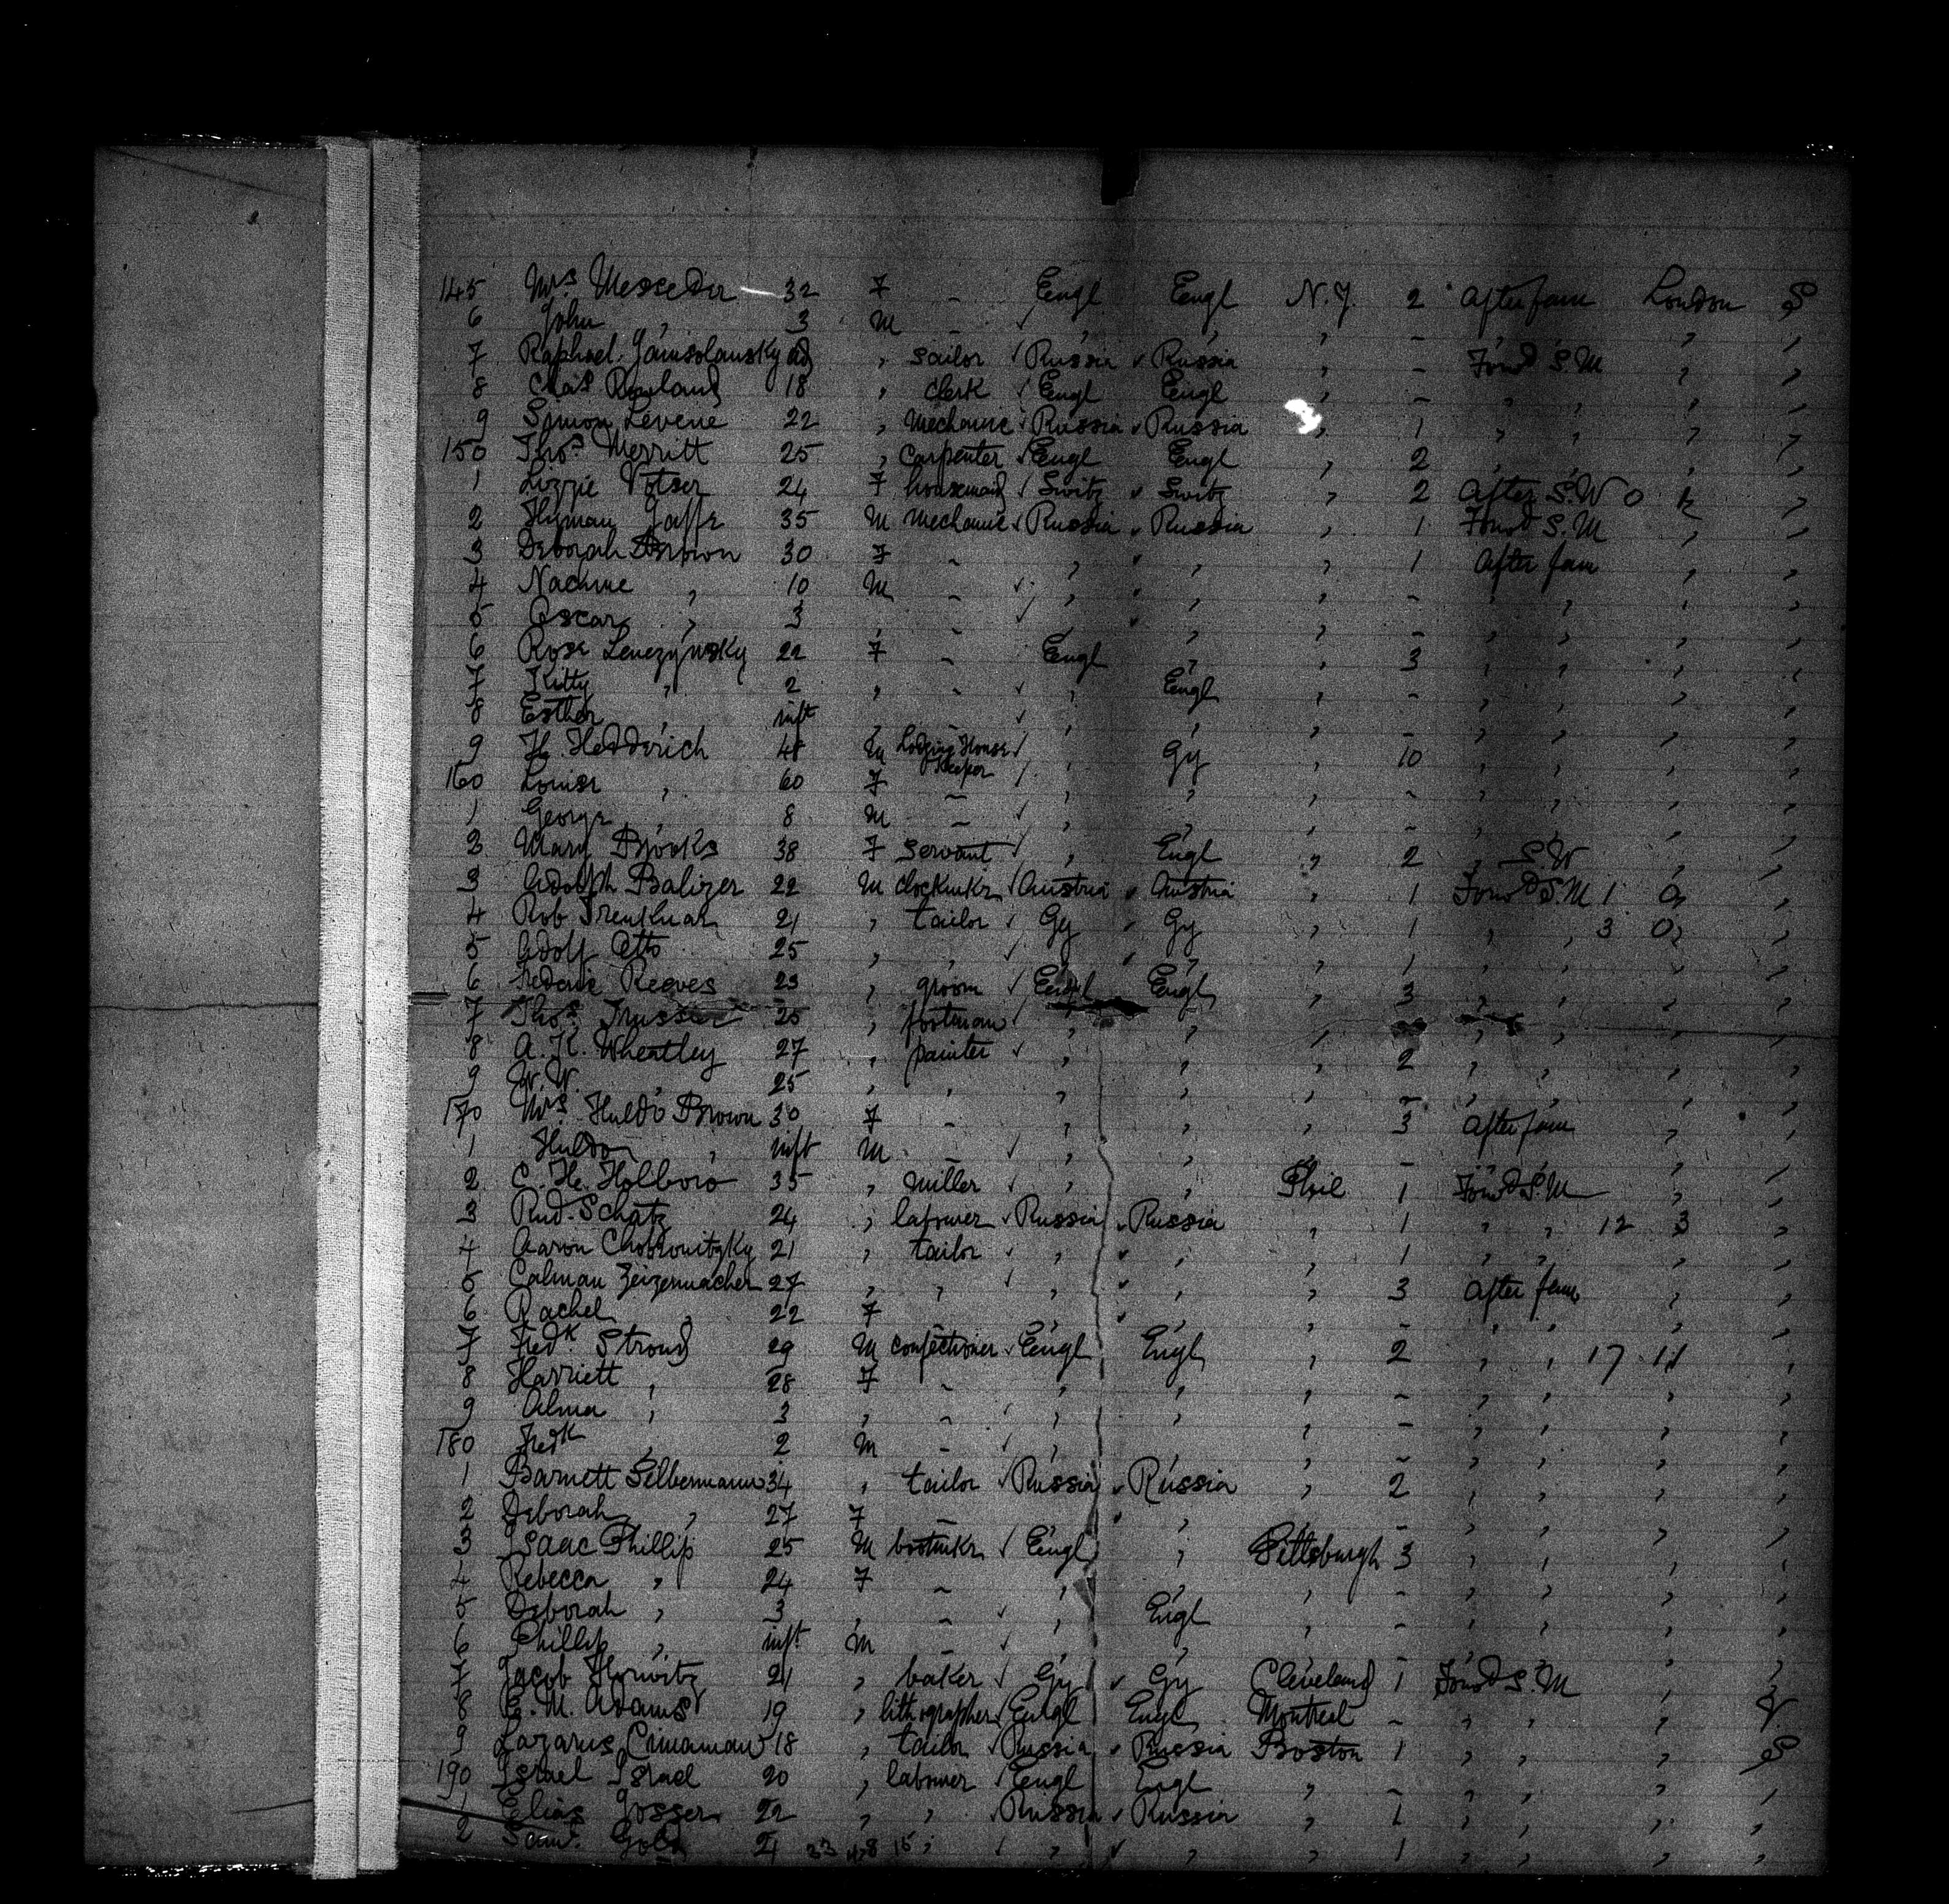 145 Mrs Messeder 32 F - Engl Engl N.Y. 2 After fam London S
6 John " 3 M - " " " - " " " "
7 Raphael " sailor Russia Russia " - Forwd S.M " "
8 Chas Rowland 18 " clerk Engl Engl " - " " " "
9 Simon Levene 22 " mechanic Russia Russia " 1 " " " "
150 Thos Merritt 25 " carpenter Engl Engl " 2 " " " "
1 Lizzie Votser 24 F housemaid Switz Switz " 2 After S.W "
2 Hyman Jaffe 35 M mechanic Russia Russia " 1 Forwd S.M " "
3 Deborah Brown 30 F - " " " 1 After fam " "
4 Nachme " 10 M - " " " - " " " "
5 Oscar " 3 " - " " " - " " " "
6 Rose Lenczynsky 22 F - Engl " " 3 " " " "
7 Kitty " 2 " - " Engl " - " " " "
8 Esther " inft " - " " " - " " " "
9 H. Hedderich 48 M Lodging House Keeper " Gy " 10 " " " "
160 Louise " 60 F - " " " - " " " "
1 George " 8 M - " " " - " " " "
2 Mary Brooks 38 F servant " Engl " 2 " S.W " "
3 Adolph Balizer 22 M clockmkr Austria Austria " 1 Forwd S.M "
4 Rob 21 " tailor Gy Gy " 1 " " "
5 Adolf Otto 25 " " " " " 1 " " " "
6 Frederic Reeves 23 " groom Engl Engl " 3 " " " "
7 Thos Trusser 25 " footman " " " " " " "
8 A. H. Wheatley 27 " painter " " " 2 " " " "
9 W. W. " 25 " " " " " - " " " "
170 Mrs Huldo Brown 30 F - " " " 3 After fam " "
1 Huldon " inft M - " " " - " " " "
2 C. H. Holboro 35 " miller " " Phil 1 Forwd S.M " "
3 Rud. Schatz 24 " labourer Russia Russia " 1 " " 12 3 "
4 Aaron 21 " tailor " " " 1 " " " "
5 Calman Zeizermacher 27 " " " " " 3 After fam " "
6 Rachel " 22 F " " " - " " " "
7 Fredk Stroud 29 M confectioner Engl Engl " 2 " " 17 11 "
8 Harriett " 28 F - " " " - " " " "
9 Alma " 3 " - " " " - " " " "
180 Fredk " 2 M - " " " - " " " "
1 Barnett Silbermann 34 " tailor Russia Russia " 2 " " " "
2 Deborah " 27 F - " " " - " " " "
3 Isaac Phillip 25 M bootmkr Engl " Pittsburgh 3 " " " "
4 Rebecca " 24 F - " " " - " " " "
5 Deborah " 3 " - " Engl " - " " " "
6 Phillip " inft M - " " " - " " " "
7 Jacob Horwitz 21 " baker Gy Gy Cleveland 1 Forwd S.M " "
8 E. M. Adams 19 " lithographer Engl Engl Montreal - " " "
9 Lazarus Cinaman 18 " tailor Russia Russia Boston 1 " " " S
190 Israel Israel 20 " labourer Engl Engl " - " " " "
1 Elias Gosser 22 " " Russia Russia " 1 " " " "
2 Saml. Gold 21 " " " " 1 " " " "